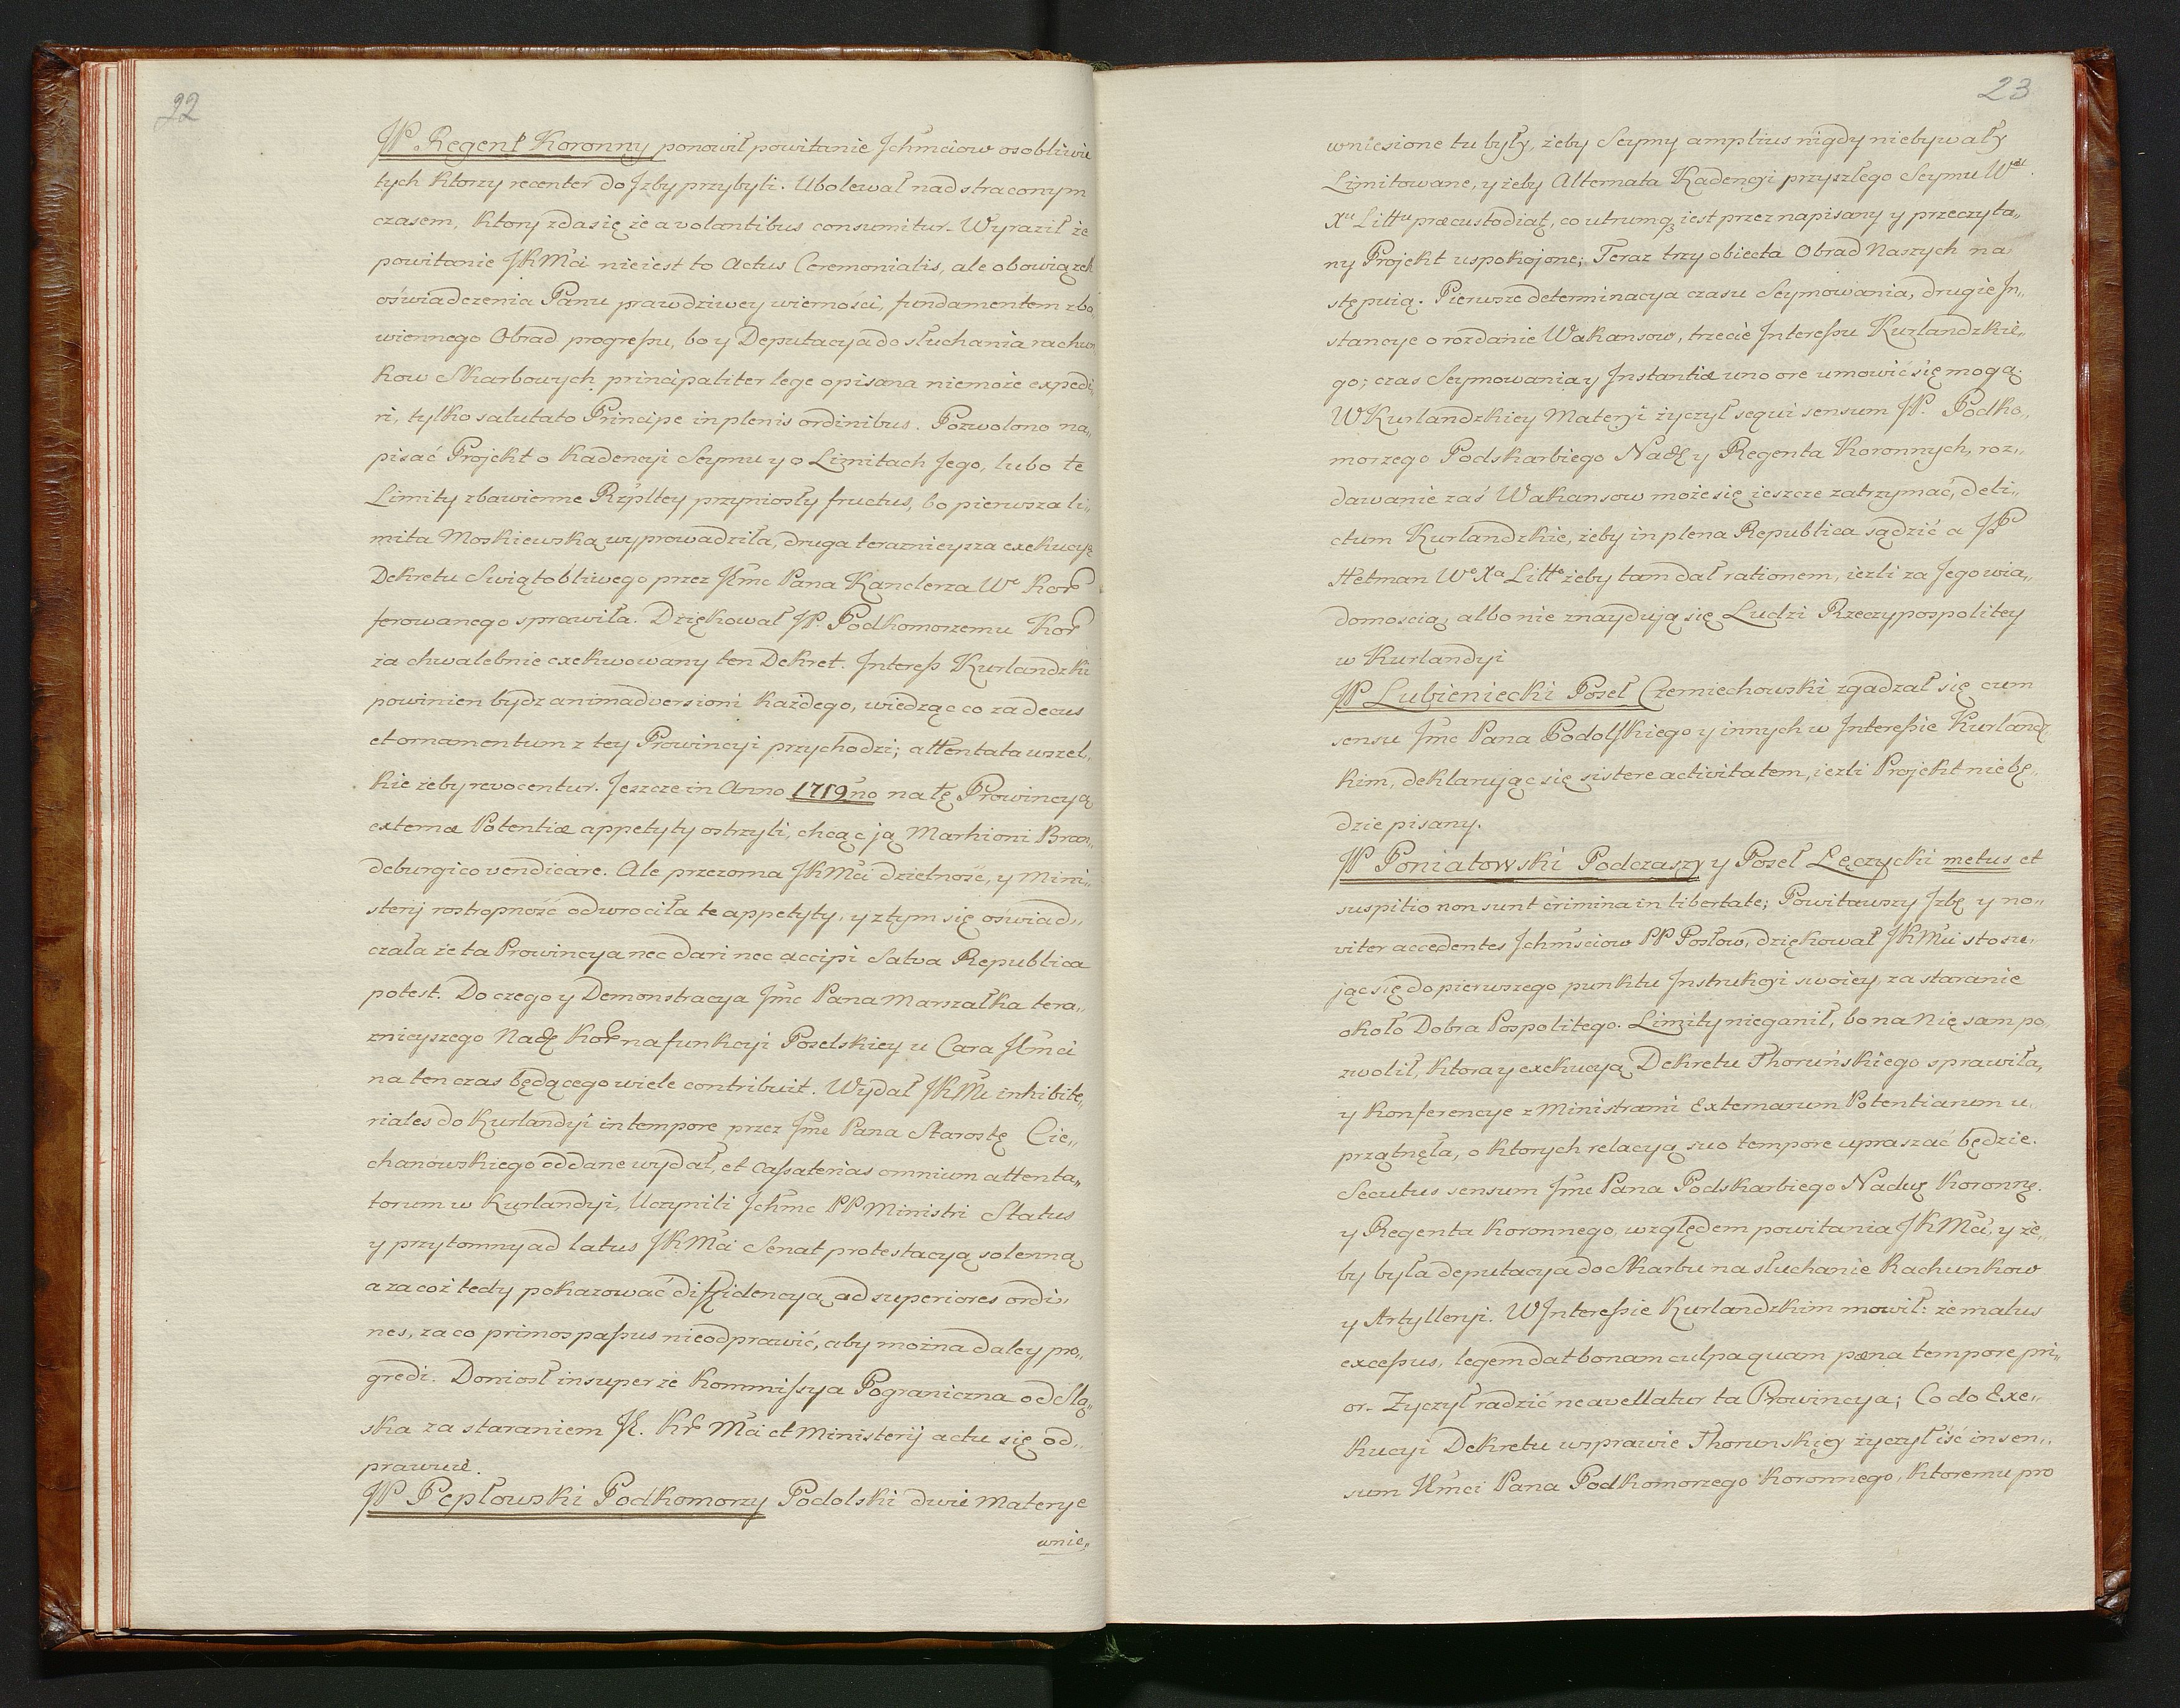 22
JP. Regent Koronny ponowił powitanie Ichmciow osobliwie
tych ktorzy recenter do Jzby przybyli. Ubolewał nad straconym
czasem, ktory zda się że a volantibus consumitur. Wyraził że
powitanie JKMci nie iest to Actus Ceremonialis, ale obowiązek
oświadczenia Panu prawdziwey wierności, fundamentem zba„
wiennego Obrad progressu, bo y Deputacya do słuchania rachun„
kow Skarbowych principaliter lege opisana niemoże expedi„
ri, tylko salutato Principe in plenis ordinibus. Pozwolono na„
pisać Projekt o Kadencyi Seymu y o Limitach Jego, lubo te
Limity zbawienne Rzpltey przyniosły fructus, bo pierwsza li„
mita Moskiewską wyprowadziła, druga teraznieysza exekucyę
Dekretu Swiątobliwego przez Jmc Pana Kanclerza We Kor
ferowanego sprawiła. Dziękował JP. Podkomorzemu Kor
za chwalebnie exekwowany ten Dekret. Interess Kurlandzki
powinien bydz animadversioni każdego, wiedząc co za decus
et ornamentum z tey Prowincyi przychodzi; attentata wszel„
kie żeby revocentur. Jeszcze in Anno 1719no na tę Prowincyą
externæ Potentiæ appetyty ostrzyli, chcąc ją Marhioni Bran„
deburgico vendicare. Ale przezorna JKMci dzielność, y Mini„
sterij rostropność odwrociła te appetyty, y z tym się oświad„
czała że ta Prowincya nec dari nec accipi Salva Republica
potest. Do czego y Demonstracya Jmc Pana Marszałka tera„
znieyszego Nad Kor na funkcyi Poselskiey u Cara Jmci
na ten czas będącego wiele contribuit. Wydał JKMć inhibito„
riales do Kurlandyi in tempore przez Jmc Pana Starostę Cie„
chanowskiego oddane wydał, et cassatorias omnium attenta„
torum w Kurlandyi, Uczynili Ichmc PP Ministri Status
y przytomny ad latus JKMci Senat protestacyą solenną
a za coż tedy pokazować diffidencyą ad superiores ordi„
nes, za co primos passus nieodprawić, aby można daley pro„
gredi. Doniosł insuper że Kommissya Pograniczna od Slą„
ska za staraniem J. Kr Mci et Ministerij actu się od„
prawuie.
JP Pepłowski Podkomorzy Podolski dwie Materye
wnie„
23
wniesione tu były, żeby Seymy amplius nigdy niebywały
Limitowane, y żeby Alternata Kadencyi przyszłego Seymu W
Xu Littu præcustodiat, co utrumq3 iest przez napisany y przeczyta„
ny Projekt uspokojone; Teraz trzy obiecta Obrad Naszych na„
stępuią. Pierwsze determinacya czasu Seymowania, drugie In„
stancye o rozdanie Wakansow, trzecie Interessu Kurlandzkie„
go; czas Seymowania y Instantiæ uno ore umowić się mogą.
W Kurlandzkiey Materyi życzył sequi sensum JP. Podko„
morzego Podskarbiego Nad y Regenta Koronnych, roz„
dawanie zaś Wakansow może się ieszcze zatrzymać, deli„
ctum Kurlandzkie, żeby in plena Republica sądzić a JP
Hetman We Xa Litte żeby tam dał rationem, ieżli za Jego wia„
domoscią albo nie znayduią się Ludzi Rzeczypospolitey
w Kurlandyi
JP Lubieniecki Poseł Czerniechowski zgadzał się cum
sensu Jmc Pana Podolskiego y innych w Interessie Kurlandz„
kim, deklarując się sistere activitatem, ieżli Projekt niebę„
dzie pisany.
JP Poniatowski Podczaszy y Poseł Łęczycki metus et
suspitio non sunt crimina in libertate; Powitawszy Jzbę y no„
viter accedentes Ichmściow PP Posłow, dziękował JKMci stosu„
jąc się do pierwszego punktu Instrukcyi swoiey, za staranie
około Dobra Pospolitego. Limity nieganił, bo na Nię sam po„
zwolił, ktora y exekucyą Dekretu Thoruńskiego sprawiła,
y Konferencye z Ministrami Externarum Potentiarum u„
przątnęła, o ktorych relacyą suo tempore upraszać będzie.
Secutus sensum Jmc Pana Podskarbiego Nadw Koronne.
y Regenta Koronnego, względem powitania JKMci, y że„
by była deputacya do Skarbu na słuchanie Rachunkow
y Artylleryi. W Interessie Kurlandzkim mowił: że malus
excessus, legem dat bonam culpa quam pæna tempore pri„
or. Życzył radzić ne avellatur ta Prowincya; Co do Exe„
kucyi Dekretu w sprawie Thorunskiey życzył iść in sen„
sum Jmci Pana Podkomorzego Koronnego, ktoremu pro